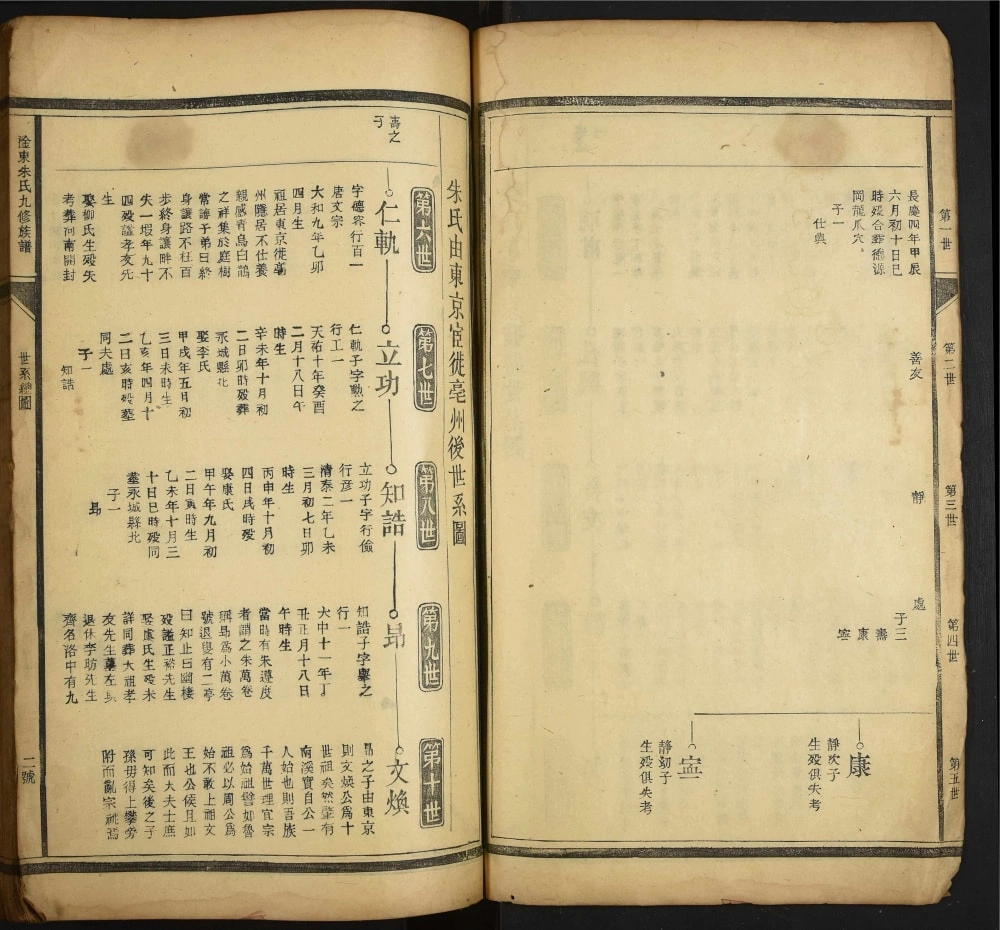 第一世
第二世
第三世
第四世
第五世
長慶四年甲辰
六月初十日巳
時歿合葬德源
岡龍爪穴
子一
仕興
善友
靜
處
子三
壽
康
寍
康
靜次子
生歿俱失考
寍
靜幼子
生歿俱失考
朱氏由東京宦徙亳州後世系圖
第六世
第七世
第八世
第九世
第十世
壽之
子
仁軌
字德容行百一
唐文宗
大和九年乙卯
四月生
祖居東京徙亳
州隱居不仕養
親感青鳥白鵲
之祥集於庭樹
常語子弟曰終
身讓路不枉百
步終身讓畔不
失一塅年九十
四歿謚孝友先
生
娶柳氏生歿失
考葬河南開封
立功
仁軌子字勲之
行工一
天祐十年癸酉
二月十八日午
時生
辛未年十月初
二日卯時歿葬
永城縣北
娶李氏
甲戌年五日初
三日未時生
乙亥年四月十
二日亥時歿墓
同夫處
子一
知誥
知誥
立功子字行儉
行彦一
清泰二年乙未
三月初七日卯
時生
丙申年十月初
四日戌時歿
娶康氏
甲午年九月初
二日寅時生
乙未年十月三
十日巳時歿同
墓永城縣北
子一
昻
昻
知誥子字舉之
行一
大中十一年丁
丑正月十八日
午時生
當時有朱遵度
者謂之朱萬卷
稱昻爲小萬卷
號退叟有二亭
曰知止曰幽棲
歿謚正裕先生
娶盧氏生歿未
詳同葬大祖孝
友先生墓左與
退休李昉先生
齊名洛中有九
文煥
昻之子由東京
則文煥公爲十
世祖矣然肇有
南溪實自公一
人始也則吾族
千萬世理宜宗
爲始祖譬如魯
祖必以周公爲
始不敢上祖文
王也公候且如
此而大夫士庶
可知矣後之子
孫毋得上攀旁
附而亂宗祧焉
淦東朱氏九修族譜
世系總圖
二號